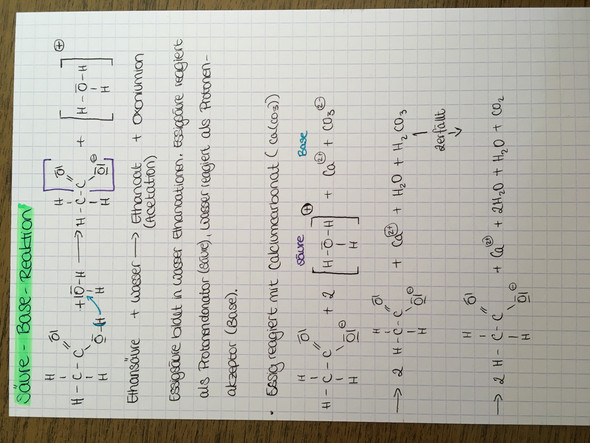 Säure - Base - Reaktion
H-C-C + H-O-H → H-C-C + [H-O-H]⊕
Ethansäure + Wasser → Ethanoat + Oxonium​ion
(Acetation)
Essigsäure bildet in Wasser Ethanoationen. Essigsäure reagiert
als Protonendonator (Säure), Wasser reagiert als Protonen-
akzeptor (Base).
• Essig reagiert mit Calciumcarbonat (Ca(CO3))
Säure Base
H-C-C + 2 [H-O-H]⊕ Ca(2+) + CO3(2-)
→ 2 H-C-C + Ca(2+) + H2O + H2CO3
zerfällt
→ 2 H-C-C + Ca(2+) + 2H2O + H2O + CO2